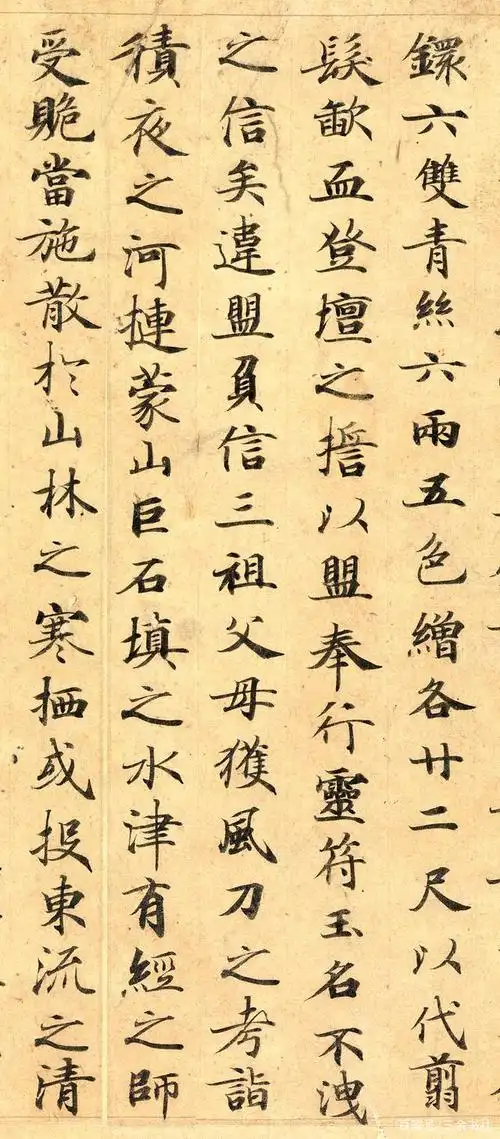 鐶六雙青絲六兩五色繒各廿二尺以代翦
髮歃血登壇之擔以盟奉行靈符玉名不洩
之信矣違盟負信三祖父母獲風刀之考詣
積夜之河摙蒙山巨石填之水津有經之師
受賍當施散於山林之寒栖或投東流之清